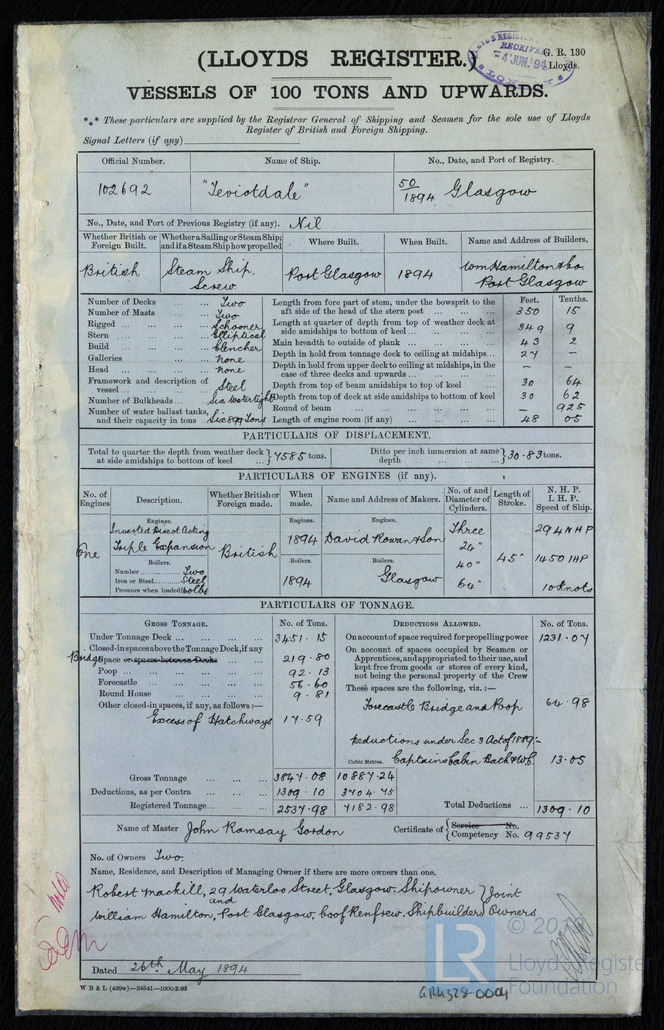 (LLOYDS REGISTER.)
G. R. 130
Lloyds.
LLOYDS REGISTER
RECEIVED
4 JUN. 94
LONDON
VESSELS OF 100 TONS AND UPWARDS.
*** These particulars are supplied by the Registrar General of Shipping and Seamen for the sole use of Lloyds
Register of British and Foreign Shipping.
Signal Letters (if any)
Official Number. Name of Ship. No., Date, and Port of Registry.
102692 "Teviotdale" 50/1894 Glasgow
No., Date, and Port of Previous Registry (if any). Nil
Whether British or Foreign Built. Whether a Sailing or Steam Ship; and if a Steam Ship how propelled Where Built. When Built. Name and Address of Builders.
British Steam Ship. Screw Port Glasgow 1894 Wm Hamilton & Co. Port Glasgow
Number of Decks ... Two
Number of Masts ... Two
Rigged ... Schooner
Stern ... Elliptical
Build ... Clencher
Galleries ... None
Head ... None
Framework and description of vessel ... Steel
Number of Bulkheads ... Six watertight
Number of water ballast tanks, and their capacity in tons Six 899 Tons
Feet. Tenths.
Length from fore part of stem, under the bowsprit to the aft side of the head of the stern post ... 350 15
Length at quarter of depth from top of weather deck at side amidships to bottom of keel ... 349 9
Main breadth to outside of plank ... 43 2
Depth in hold from tonnage deck to ceiling at midships ... 27 —
Depth in hold from upper deck to ceiling at midships, in the case of three decks and upwards ... — —
Depth from top of beam amidships to top of keel ... 30 64
Depth from top of deck at side amidships to bottom of keel 30 62
Round of beam ... — 925
Length of engine room (if any) ... 48 05
PARTICULARS OF DISPLACEMENT.
Total to quarter the depth from weather deck at side amidships to bottom of keel ... } 7585 tons. Ditto per inch immersion at same depth ... } 30·83 tons.
PARTICULARS OF ENGINES (if any).
No. of Engines Description. Whether British or Foreign made. When made. Name and Address of Makers. No. of and Diameter of Cylinders. Length of Stroke. N. H. P. I. H. P. Speed of Ship.
Engines. Engines. Engines.
One Inverted Direct Acting Triple Expansion British 1894 David Rowan & Son Three 24" 40" 64" 45" 294 NHP 1450 IHP 10 Knots
Boilers. Boilers. Boilers.
Number ... Two
Iron or Steel ... Steel 1894 Glasgow
Pressure when loaded 160 lbs
PARTICULARS OF TONNAGE.
GROSS TONNAGE. No. of Tons. DEDUCTIONS ALLOWED. No. of Tons.
Under Tonnage Deck ... 3451·15
Closed-in spaces above the Tonnage Deck, if any
Bridge Space or spaces between Decks ... 219·80
Poop ... 92·13
Forecastle ... 56·60
Round House ... 9·81
Other closed-in spaces, if any, as follows:—
Excess of Hatchways 17·59
On account of space required for propelling power 1231·07
On account of spaces occupied by Seamen or Apprentices, and appropriated to their use, and kept free from goods or stores of every kind, not being the personal property of the Crew
These spaces are the following, viz.:—
Forecastle Bridge and Poop 64·98
Deductions under Sec 3 Act of 1889:—
Cubic Metres. Captains Cabin Bath & WC. 13·05
Gross Tonnage ... 3847·08 10887·24
Deductions, as per Contra ... 1309·10 3704·75
Registered Tonnage ... 2537·98 7182·98 Total Deductions ... 1309·10
Name of Master John Ramsay Gordon Certificate of { Service No. Competency No. 99537
No. of Owners Two.
Name, Residence, and Description of Managing Owner if there are more owners than one.
Robert Mackill, 29 Waterloo Street, Glasgow. Shipowner } Joint
and
William Hamilton, Port Glasgow, Co of Renfrew. Shipbuilder } Owners
Dated 26th May 1894
W B & L (439w)—24541—1000-2-93
GRH328-0004
© 2019
LR
Lloyd's Register
Foundation